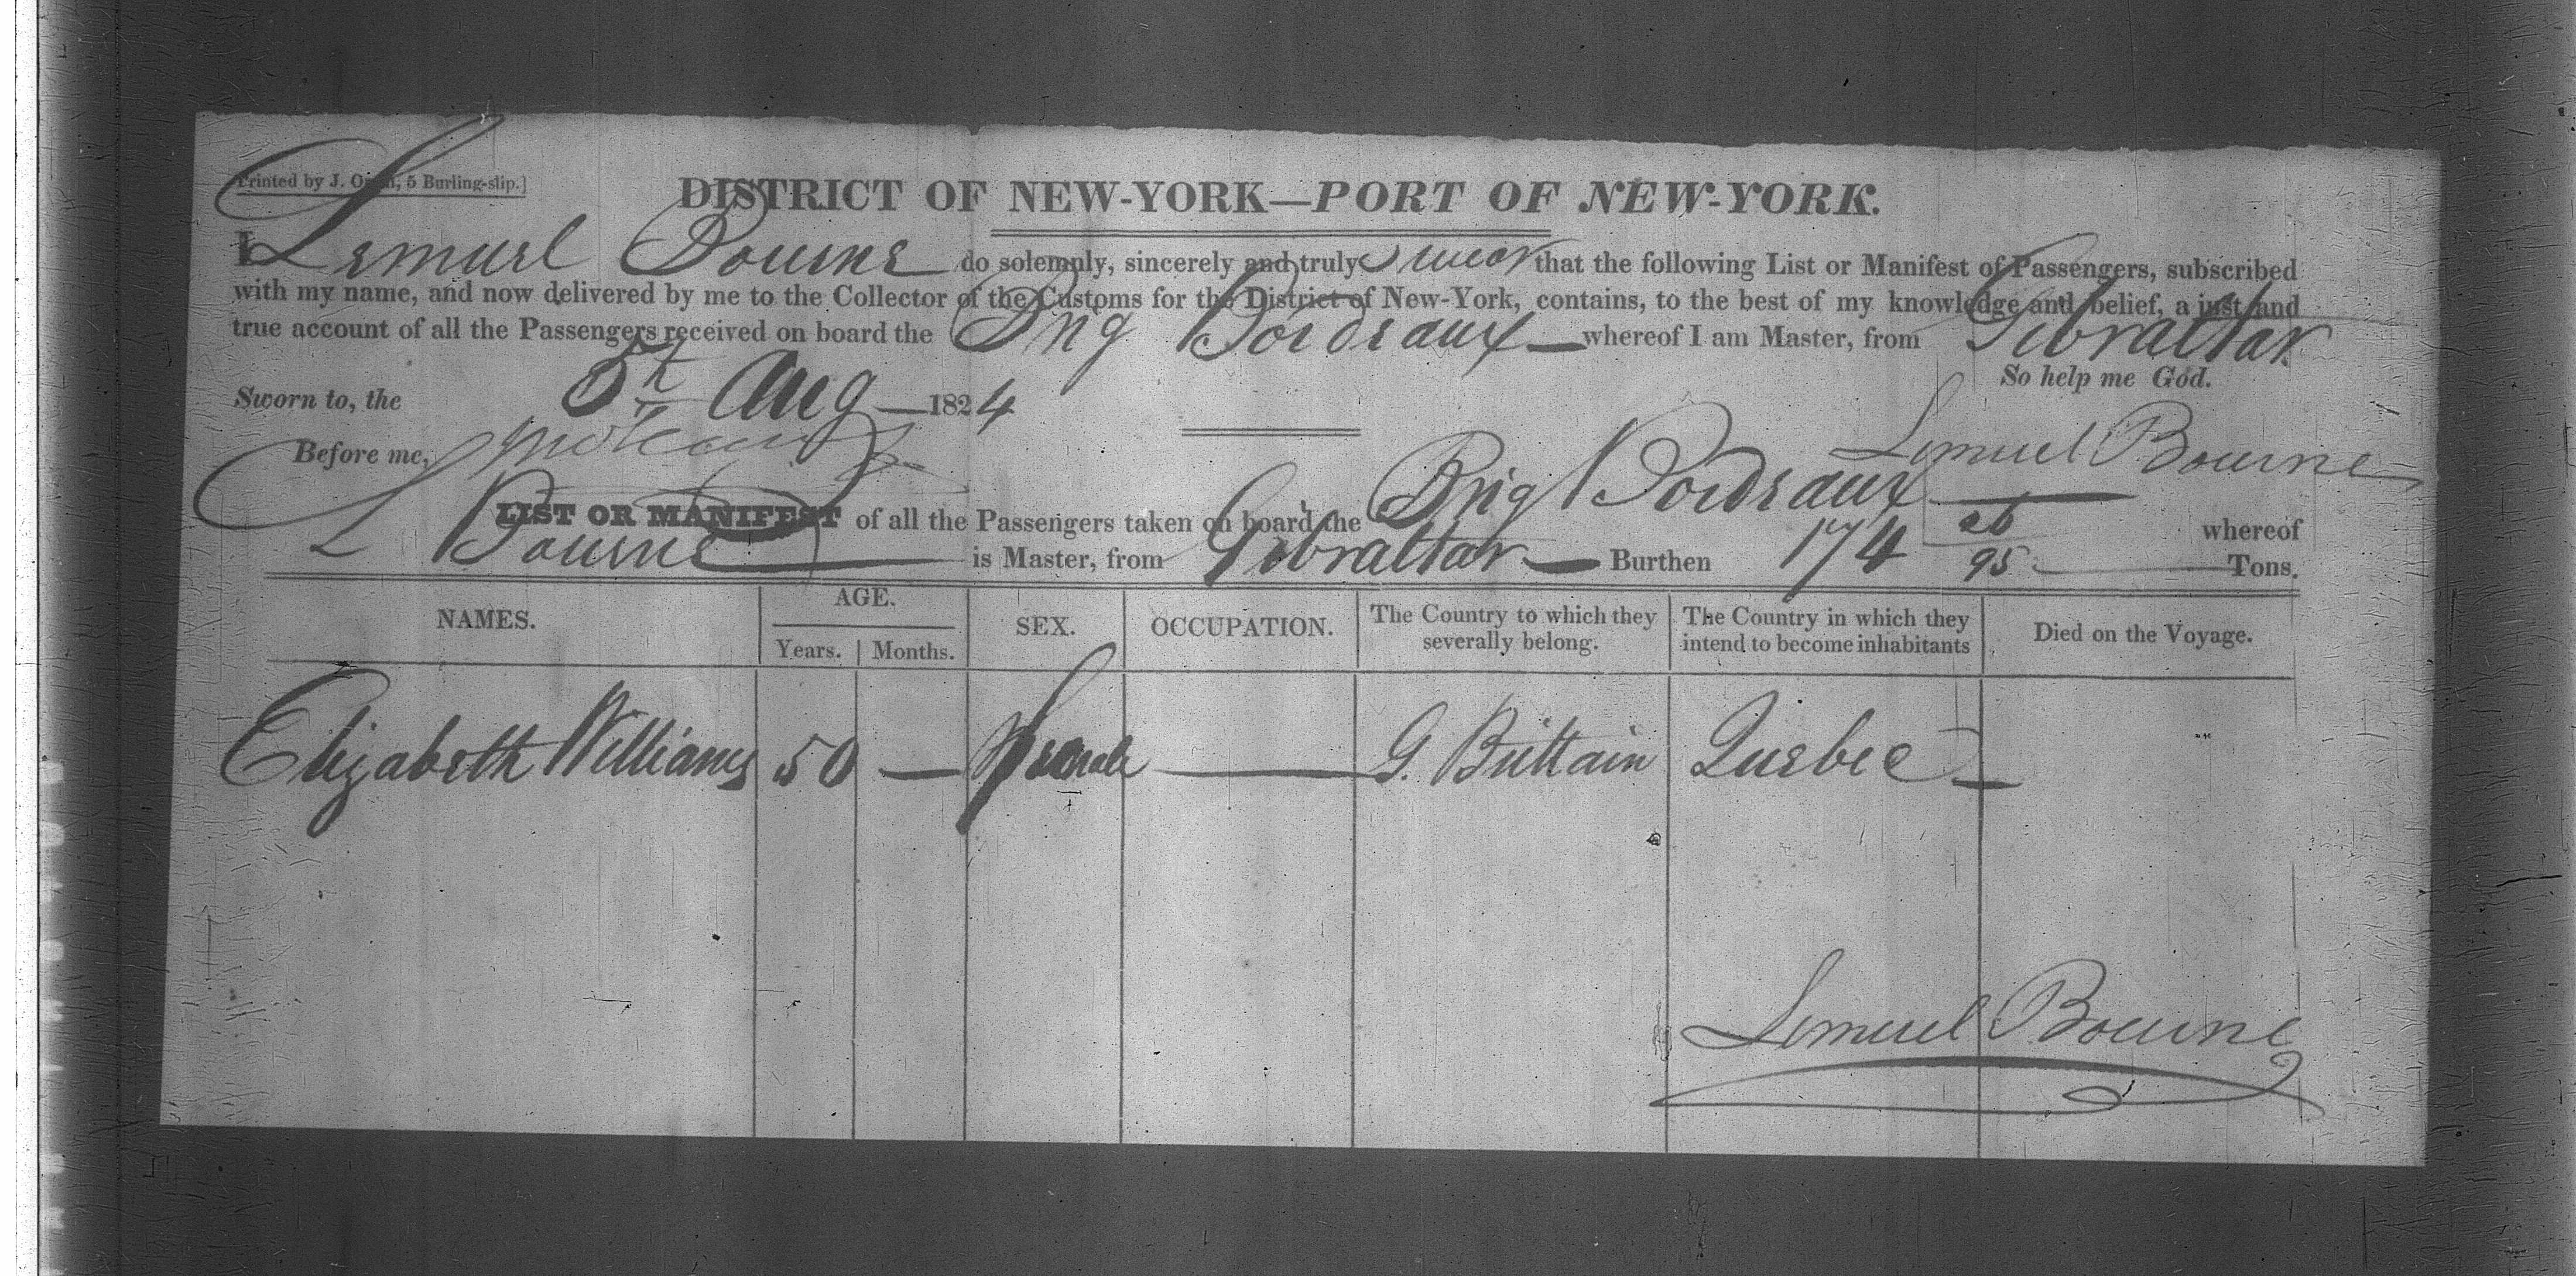 Printed by J. Oram, 5 Burling-slip.]
DISTRICT OF NEW-YORK—PORT OF NEW-YORK.
I Lemuel Bourne do solemnly, sincerely and truly swear that the following List or Manifest of Passengers, subscribed
with my name, and now delivered by me to the Collector of the Customs for the District of New-York, contains, to the best of my knowledge and belief, a just and
true account of all the Passengers received on board the Brig Bordeaux whereof I am Master, from Gibraltar
So help me God.
Sworn to, the 5th Aug 1824
Lemuel Bourne
Before me,
LIST OR MANIFEST of all the Passengers taken on board the Brig Bordeaux whereof
L Bourne is Master, from Gibraltar Burthen 174 26/95 Tons.
NAMES. AGE. SEX. OCCUPATION. The Country to which they severally belong. The Country in which they intend to become inhabitants Died on the Voyage.
Years. Months.
Elizabeth Williams 50 — Female — G. Brittain Quebec —
Lemuel Bourne